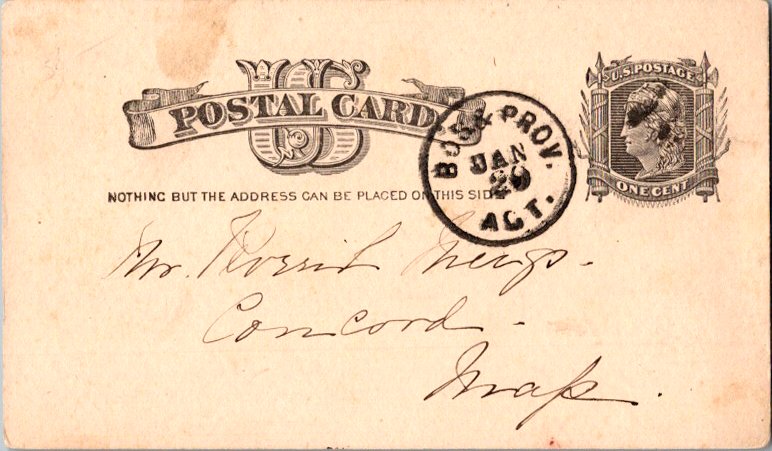 US
POSTAL CARD
NOTHING BUT THE ADDRESS CAN BE PLACED ON THIS SIDE
BOS & PROV.
JAN
29
AGT.
U.S. POSTAGE
ONE CENT
Mr.
Concord.
Mass.